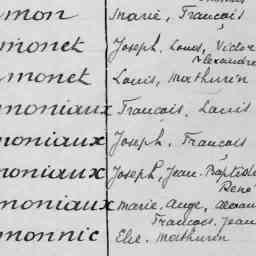 mon Marie, François
monet Joseph, Louis, Victor
Alexandre
monet Louis, Mathurin
moniaux François, Louis
moniaux Joseph, François
moniaux Joseph, Jean-Baptiste
René
moniaux Marie-Ange,
François, Jean
monnic Elie-Mathurin